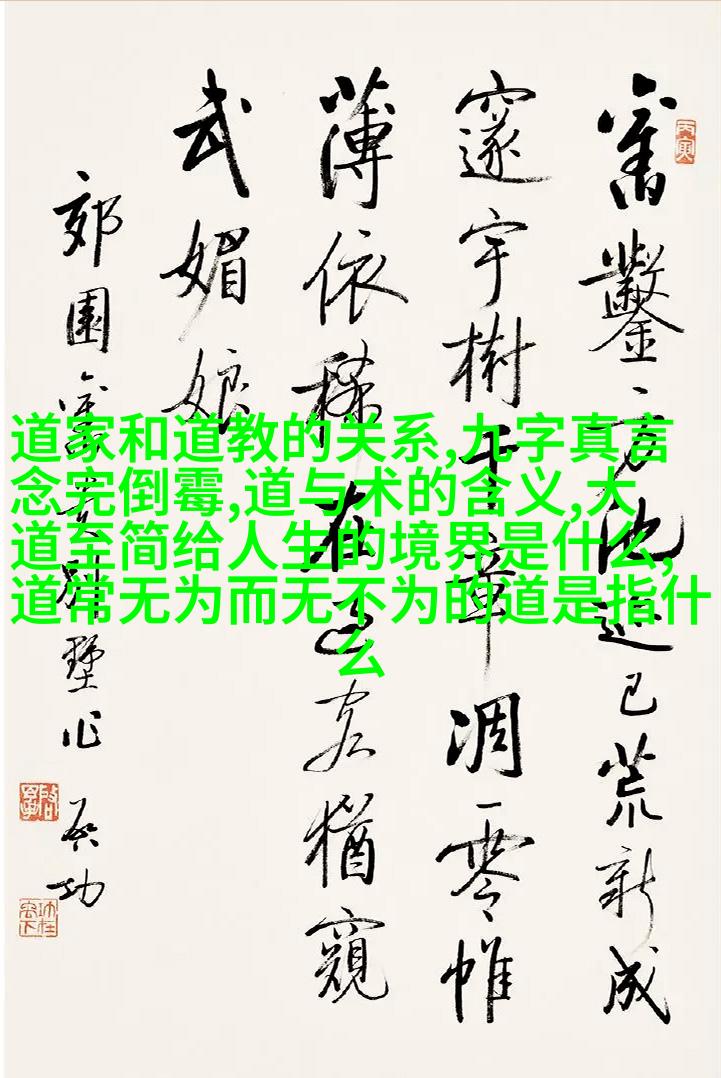 道家和道教的关系,九字真言
念完倒霉,道与术的含义,大
道至简给人生的境界是什么,
道常无为而无不为的道是指什
么
丙寅
舊鑿方池迹已荒新成
邃宇樹千章凋零帷
薄依稀在夜猶窺
武媚娘
郊園舊別墅作 啟功